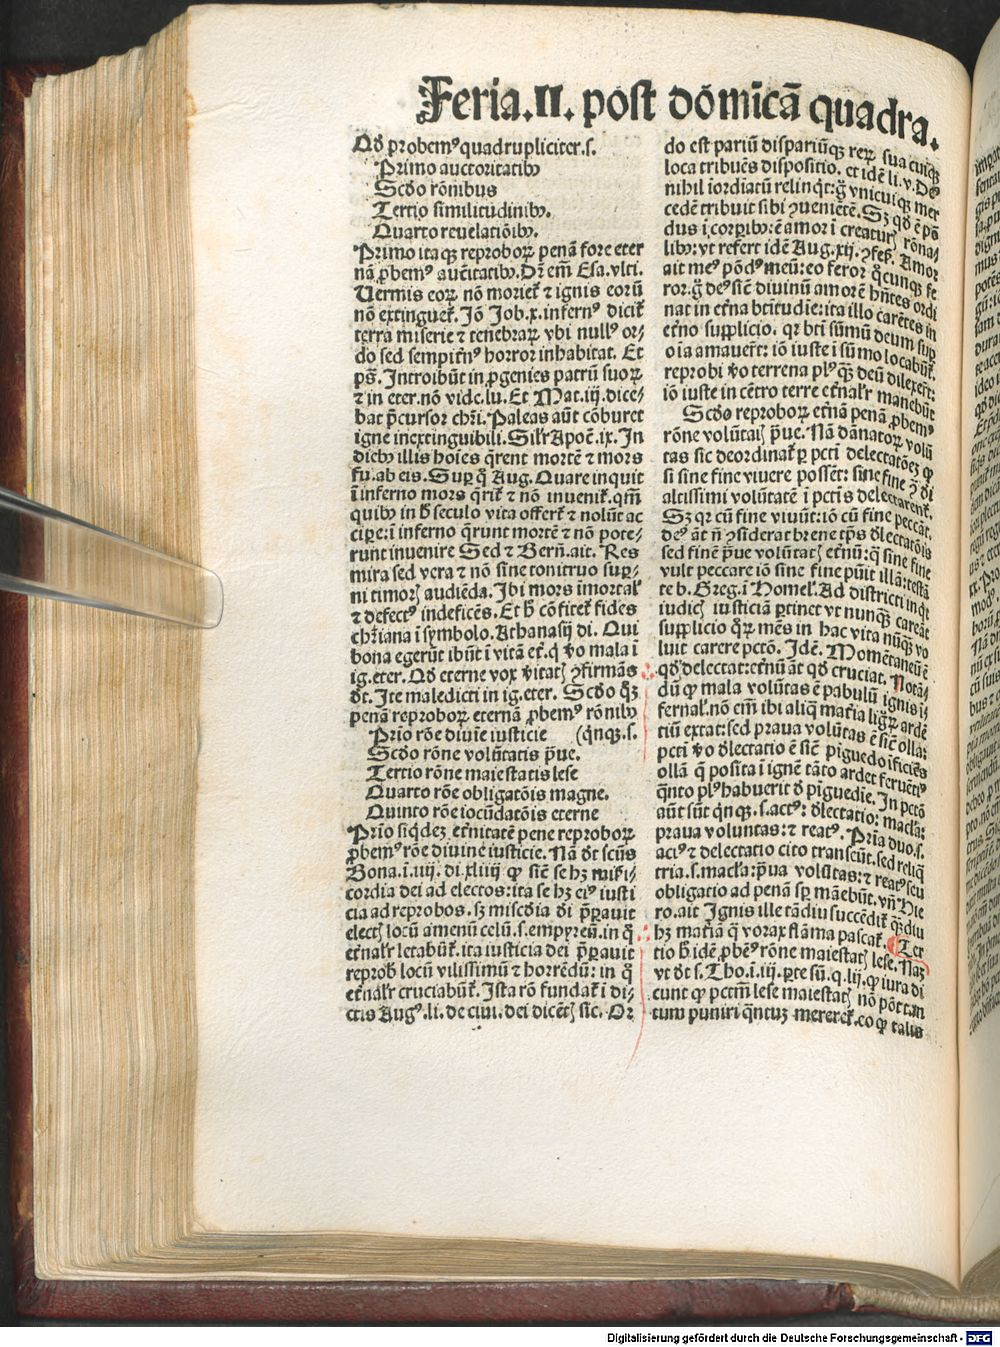 Feria.II. post dōmīcā quadra.
Qđ probemꝰ quadrupliciter.s.
Primo auctoritatibꝰ
Scđo rōnibus
Tertio similitudinibꝰ.
Quarto reuelatiōibꝰ.
Primo itaqꝫ reproboꝝ penā fore eter
nā ꝓbemꝰ auctitatibꝰ. Dr̄ em̄ Esa. vlti.
Uermis eoꝝ nō moriet̄ ⁊ ignis eorū
nō extinguet̄. Jō Job.x. infernꝰ dicit̄
terra miserie ⁊ tenebraꝝ vbi nullꝰ or⸗
do sed sempit̄nꝰ horror inhabitat. Et
pš. Introibūt in ꝓgenies patrū suoꝝ
⁊ in eter. nō vide. lu. Et Mat. iij. dice⸗
bat p̄cursor chr̄i. Paleas aūt cōburet
igne inextinguibili. Silr̄ Apoc̄. ix. In
diebꝰ illis hoīes q̄rent mortē ⁊ mors
fu. ab eis. Suꝑ q̄ Aug. Quare inquit
ī inferno mors q̄rit̄ ⁊ nō inuenit̄. qm̄
quibꝰ in h̄ seculo vita offert̄ ⁊ nolūt ac
cipe: ī inferno q̄runt mortē ⁊ nō pote⸗
runt inuenire Sed ⁊ Bern̄. ait. Res
mira sed vera ⁊ nō sine tonitruo suꝑ⸗
ni timorꝭ audiēda. Ibi mors īmortal̄
⁊ defectꝰ indeficēs. Et h̄ cōfitet̄ fides
chr̄iana ī symbolo. Athanasij di. Qui
bona egerūt ibūt ī vitā et̄. q̄ v̄o mala ī
ig. eter. Qđ eterne vox v̄itatꝭ ꝯfirmās
đt. Ite maledicti in ig. eter. Scđo q̄ꝫ
penā reproboꝝ eternā ꝓbemꝰ rōnibꝰ
Prīo rōe diuīe iusticie (q̄nqꝫ.s.
Scđo rōne volūtatis p̄ue.
Tertio rōne maiestatis lese
Quarto rōe obligatōis magne.
Quinto rōe iocūdatōis eterne
Prīo siq̄dez et̄nitatē pene reproboꝝ
ꝓbemꝰ rōe diuine iusticie. Nā đt sc̄ūs
Bona. ī. iiij. di. xliiij ꝙ sic̄ se hꝫ mīẜi⸗
cordia dei ad electos: ita se hꝫ eiꝰ iusti
cia ad reprobos. sꝫ misc̄dia đi p̄ꝑauit
electꝭ locū amenū celū. s. empyreū. in q̄
et̄nalr̄ letabūt̄. ita iusticia dei p̄ꝑauit
reprob̄ locū vilissimū ⁊ horrēdū: in q̄
et̄nalr̄ cruciabūt̄. Ista rō fundat̄ ī di⸗
ctis Augꝰ. li. de ciui. dei dicētꝭ sic. Or
do est pariū dispariūqꝫ reꝝ sua cuiqꝫ
loca tribuēs dispositio. et idē li. v. Deꝰ
nihil iordiatū relinq̄t: ḡ vnicuiqꝫ mer
cedē tribuit sibi ꝯueniētē. Sꝫ qđ ē pō
dus ī corꝑibꝰ: ē amor ī creaturꝭ rōna⸗
libꝰ: vt refert idē Aug. xij. ꝯfes̄. Amor
ait meꝰ pōdꝰ meū: eo feror q̄cunqꝫ fe
ror. ḡ deꝰ sic̄ diuinū amorē hn̄tes ordi
nat in et̄na btītudīe: ita illo carētes in
et̄no supplicio. qr bt̄i sūmū deum suꝑ
oīa amauer̄t: iō iuste ī sūmo locabūt̄.
reprobi v̄o terrena plꝰ qꝫ deū dilexer̄t:
iō iuste in cētro terre et̄nalr̄ manebūt
Scđo reproboꝝ et̄nā penā ꝓbemꝰ
rōne volūtatꝭ p̄ue. Nā dānatoꝝ volū
tas sic deordinat̄ ꝑ pctī delectatōeꝫ ꝙ
si sine fine viuere possēt: sine fine ꝯ đi
altissimi volūtatē ī pctīs delectarent̄.
Sꝫ qr cū fine viuūt: iō cū fine peccāt.
deꝰ āt n̄ ꝯsiderat breue tp̄s đlectatōīs
sed finē p̄ue volūtatꝭ et̄nū: q̄ sine fine
vult peccare iō sine fine pūit illā: testā
te b. Greg. ī Homel̄. Ad districti inq̄t
iudicꝭ iusticiā ꝑtinet vt nunqꝫ careāt
supplicio q̄ꝝ mēs in hac vita nūqꝫ vo
luit carere pctō. Idē. Momētaneū ē
qđ delectat: et̄nū āt qđ cruciat. Notā⸗
dū ꝙ mala volūtas ē pabulū ignis ī⸗
fernal̄. nō em̄ ibi aliq̄ mat̄ia ligꝝ ardē
tiū extat: sed praua volūtas ē sic̄ olla:
pctī v̄o đlectatio ē sic̄ piguedo īficiēs
ollā q̄ posita ī ignē tāto ardet feruētiꝰ
q̄nto plꝰ habuerit đ piguedie. In pctō
aūt sūt q̄nqꝫ. s. actꝰ: đlectatio: macl̄a:
praua voluntas: ⁊ reatꝰ. Prīa duo. s.
aciꝰ ⁊ delectatio cito transeūt. sed reliq̄
tria. s. macl̄a: p̄ua volūtas: ⁊ reatꝰ seu
obligatio ad penā sꝑ mānebūt. vn̄ Hie
ro. ait Ignis ille tādiu succēdit̄ qꝫdiu
hꝫ mat̄iā q̄ vorax flāma pascat̄. Ter
tio h̄ idē ꝓbēꝰ rōne maiestatꝭ lese. Naꝫ
vt đt s. Tho. ī. iiij. ꝑte sū. q. lij. ꝙ iura di
cunt ꝙ pctm̄ lese maiestatꝭ nō pōt tan
tum puniri q̄ntuꝫ mereret̄. eo ꝙ talis
Digitalisierung gefördert durch die Deutsche Forschungsgemeinschaft - DFG